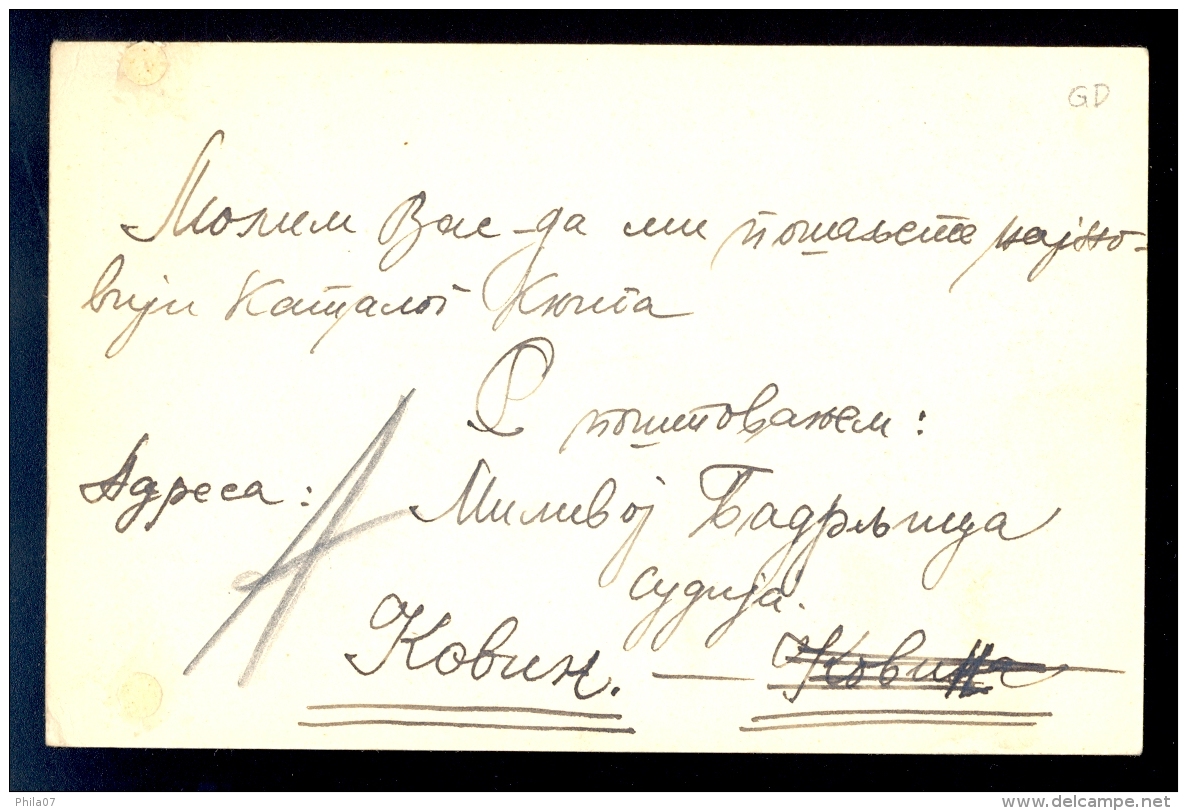 GD
Молим Вас да ми пошаљете најно-
вији Каталог Књига
С поштовањем:
Адреса:
А
Миливој Бадрљица
судија.
Ковин. — Ковин
Phila07
delcampe.net